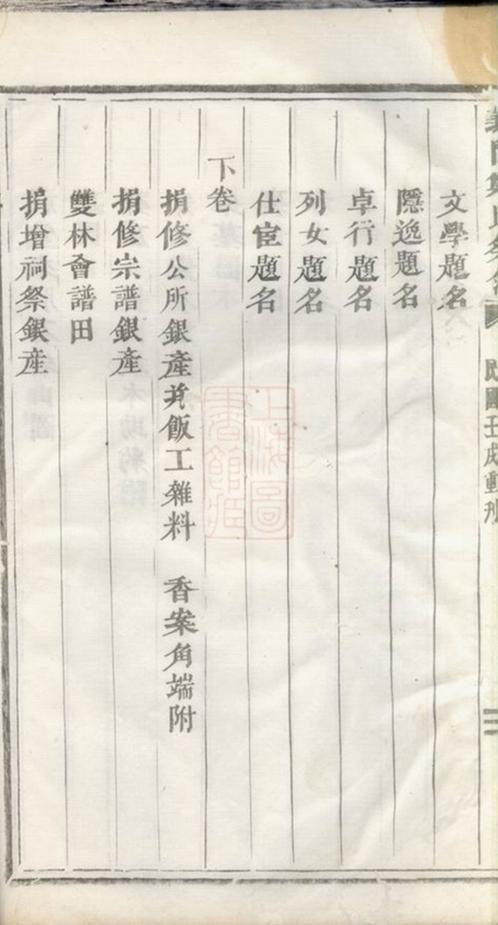 民國壬戌重刊
文學題名
隱逸題名
卓行題名
列女題名
仕宦題名
下卷
捐修公所銀產并飯工雜料　香案角端附
捐修宗譜銀產
雙林會譜田
捐增祠祭銀產
上海圖書館藏